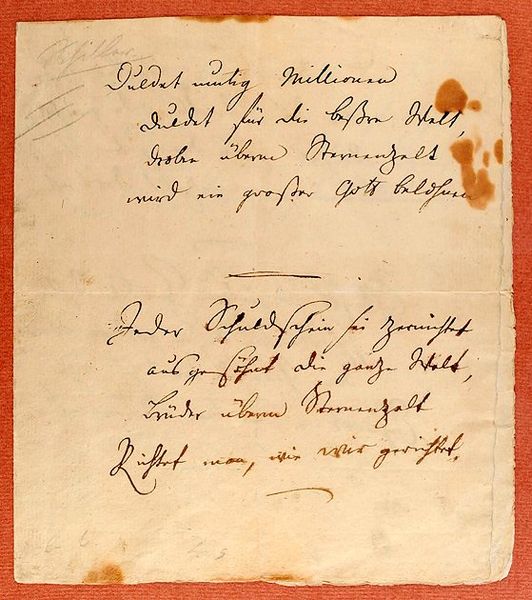 Schiller
Duldet mutig Millionen
Duldet für die beßre Welt,
droben überm Sternenzelt
wird ein großer Gott belohnen
Jeder Schuldschein sei zernichtet
ausgesöhnt die ganze Welt,
Brüder überm Sternenzelt
Richtet man, wie wir gerichtet.